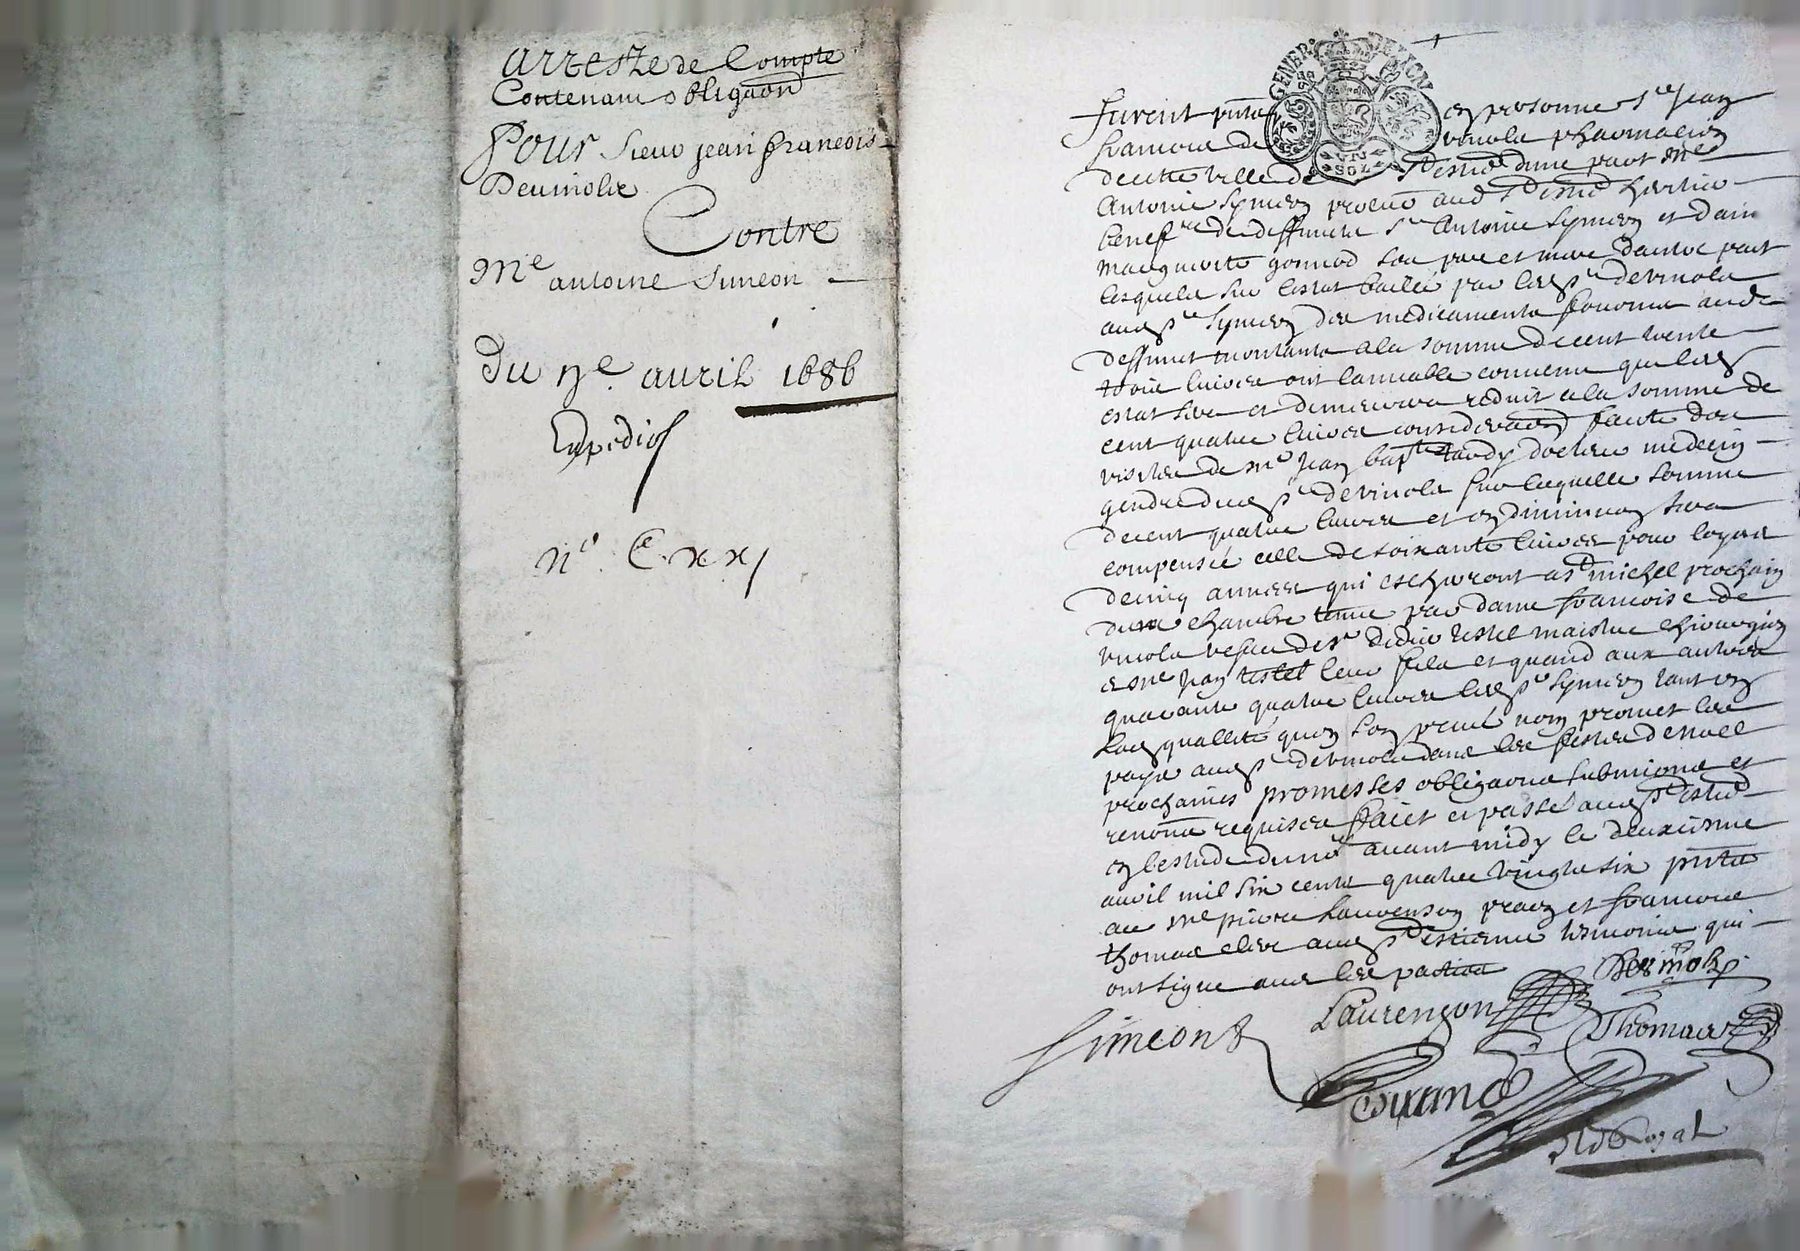 arreste de Compte
Contenant obligaon
Pour Sieur jean francois
Devinolie
Contre
Me antoine Simeon
Du 2e avril 1686
Expedié
n° C xxj
GENER. DE LYON
SOL
furent pnts en personne Sr Jean
francois de vinols pharmacien
de cette ville de St Estne dune part Me
Antoine Symeon procur aud St Estne hertier
benefre de deffunctz Sr Antoine Symeon et dam
Marguerite gonnod son pere et mere dautre part
lesquels sur lestat baillé par led Sr devinols
aud Sr Symeon des medicaments fournis aud
deffunct montants a la somme de cent trente
trois livres ont lamiable convenu que led
estat sera et demeurera reduit a la somme de
cent quatre livres consideraon faicte des
visites de Mr Jean bapte tardy docteur medecin
gendre dud Sr devinols sur laquelle somme
de cent quatre livres et en diminuon sera
compensée celle de soixante livres pour loyers
de cinq annees qui escherront a St michel prochain
dune chambre tenue par dame francoise de
vinols vefve de Sr Didier testel maistre chirurgien
e Me Jean testel leur fils et quand aux autres
quarante quatre livres led Sr Symeon tant en
lad quallité quen son privé nom promet les
payer aud Sr devinols dans les festes de noel
prochaines promesses obligaons submions et
renons requises faict et passé aud St Estne
en lestude du nre avant midy le deuxiesme
avril mil six cents quatre vingts six pnts
a Me pierre Laurenson pracn et francois
thomas clerc aud St estienne tesmoins qui
ont signe avec les parties
Devinols
Laurenson
Simeon
Thomas
Durand